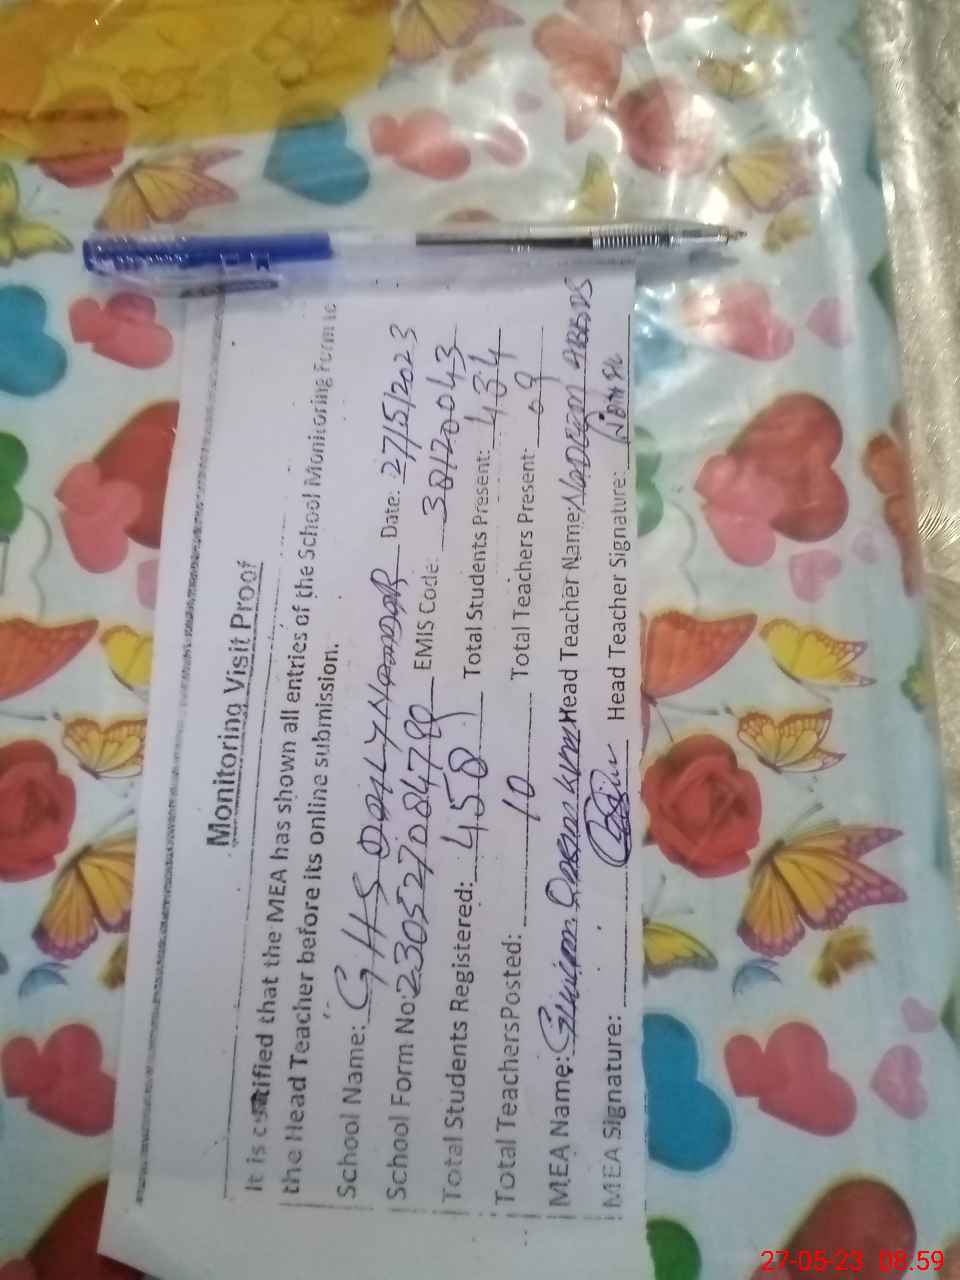 Monitoring Visit Proof
It is certified that the MEA has shown all entries of the School Monitoring Form to
the Head Teacher before its online submission.
School Name: GHS Date: 27/5/2023
School Form No: 230527084780 EMIS Code: 38120043
Total Students Registered: 458 Total Students Present: 434
Total Teachers Posted: 10 Total Teachers Present: 09
MEA Name: Head Teacher Name: Nadeem Abbas
MEA Signature: Head Teacher Signature:
27-05-23 08:59